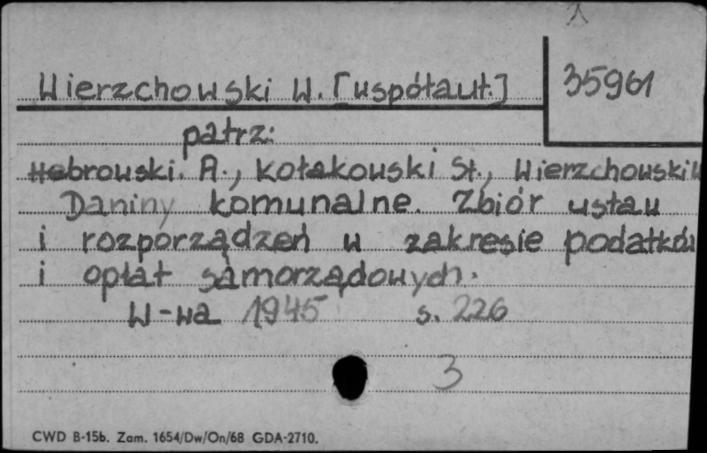 Wierzchowski W. [współaut.]
35961
patrz:
Hebrowski. A., Kołakowski St., Wierzchowski W
Daniny komunalne. Zbiór ustaw
i rozporządzeń w zakresie podatków
i opłat samorządowych.
W-wa 1945 s. 226
3
CWD B-15b. Zam. 1654/Dw/On/68 GDA-2710.